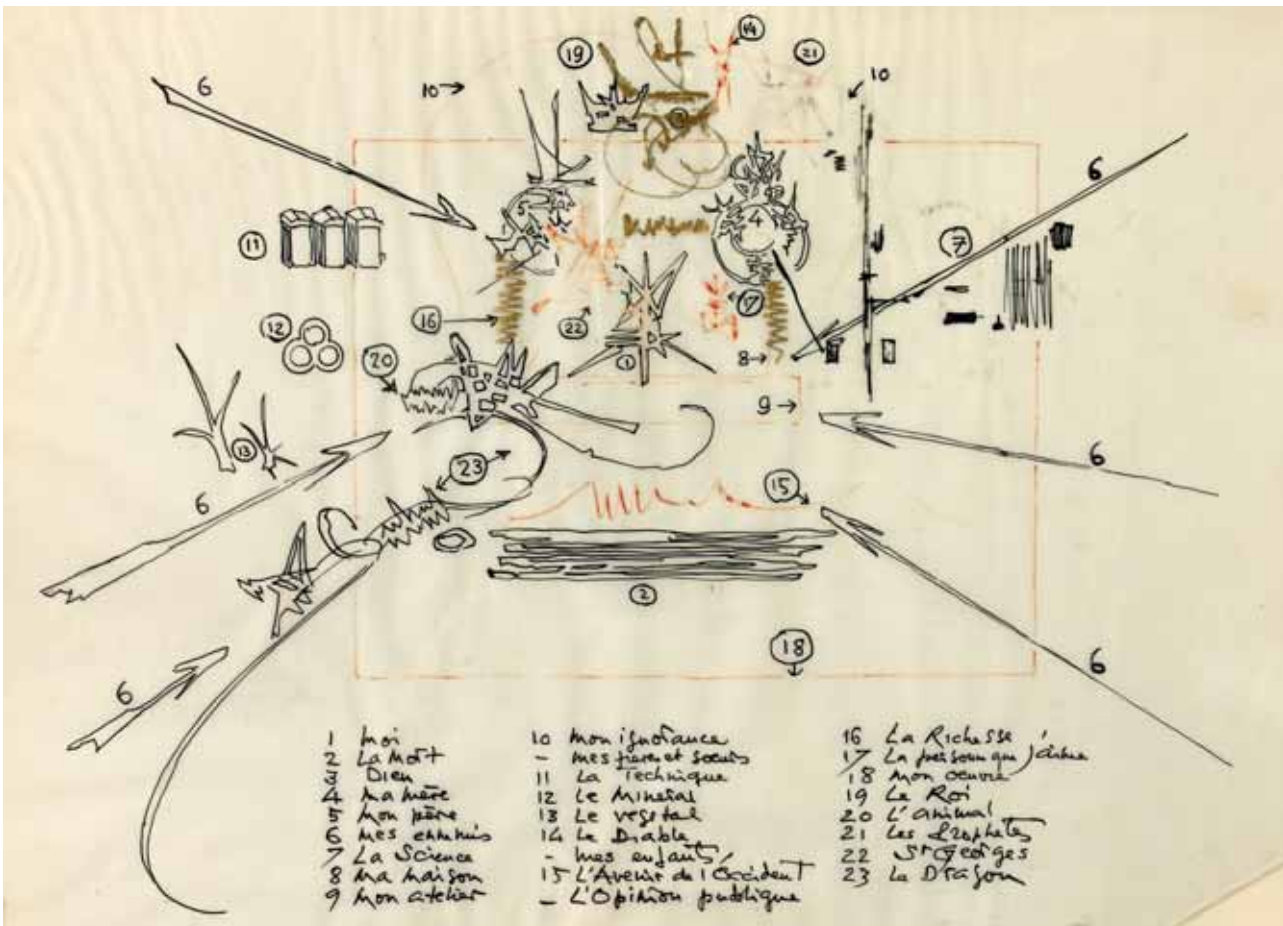 19
14
21
10
10
6
6
5
4
11
7
16
22
17
12
20
1
8
9
13
23
6
6
15
6
2
18
6
6
1 moi
2 La mort
3 Dieu
4 ma mère
5 mon père
6 mes ennemis
7 La Science
8 ma maison
9 mon atelier
10 mon ignorance
- mes frères et soeurs
11 La Technique
12 Le Minéral
13 Le végétal
14 Le Diable
- mes enfants
15 L'Avenir de l'Occident
- L'Opinion publique
16 La Richesse
17 La personne que j'aime
18 mon oeuvre
19 Le Roi
20 L'animal
21 Les Prophètes
22 St Georges
23 Le Dragon